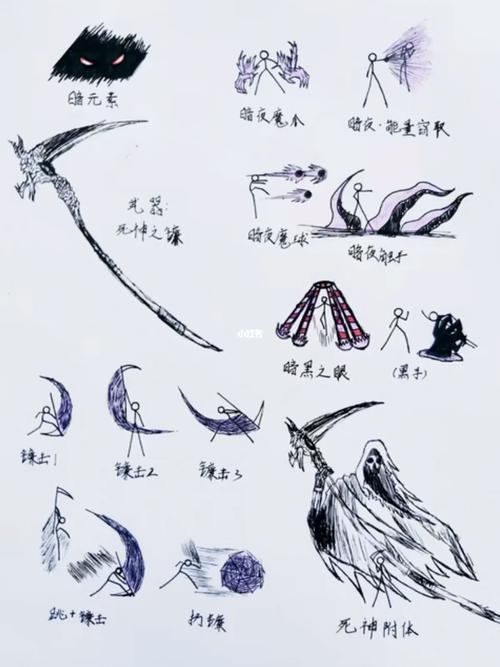 暗元素
暗夜魔爪
暗夜·能量窃取
武器:
死神之镰
暗夜魔球
暗夜触手
小红书
暗黑之眼
(黑手)
镰击1
镰击2
镰击3
跳+镰击
扔镰
死神附体